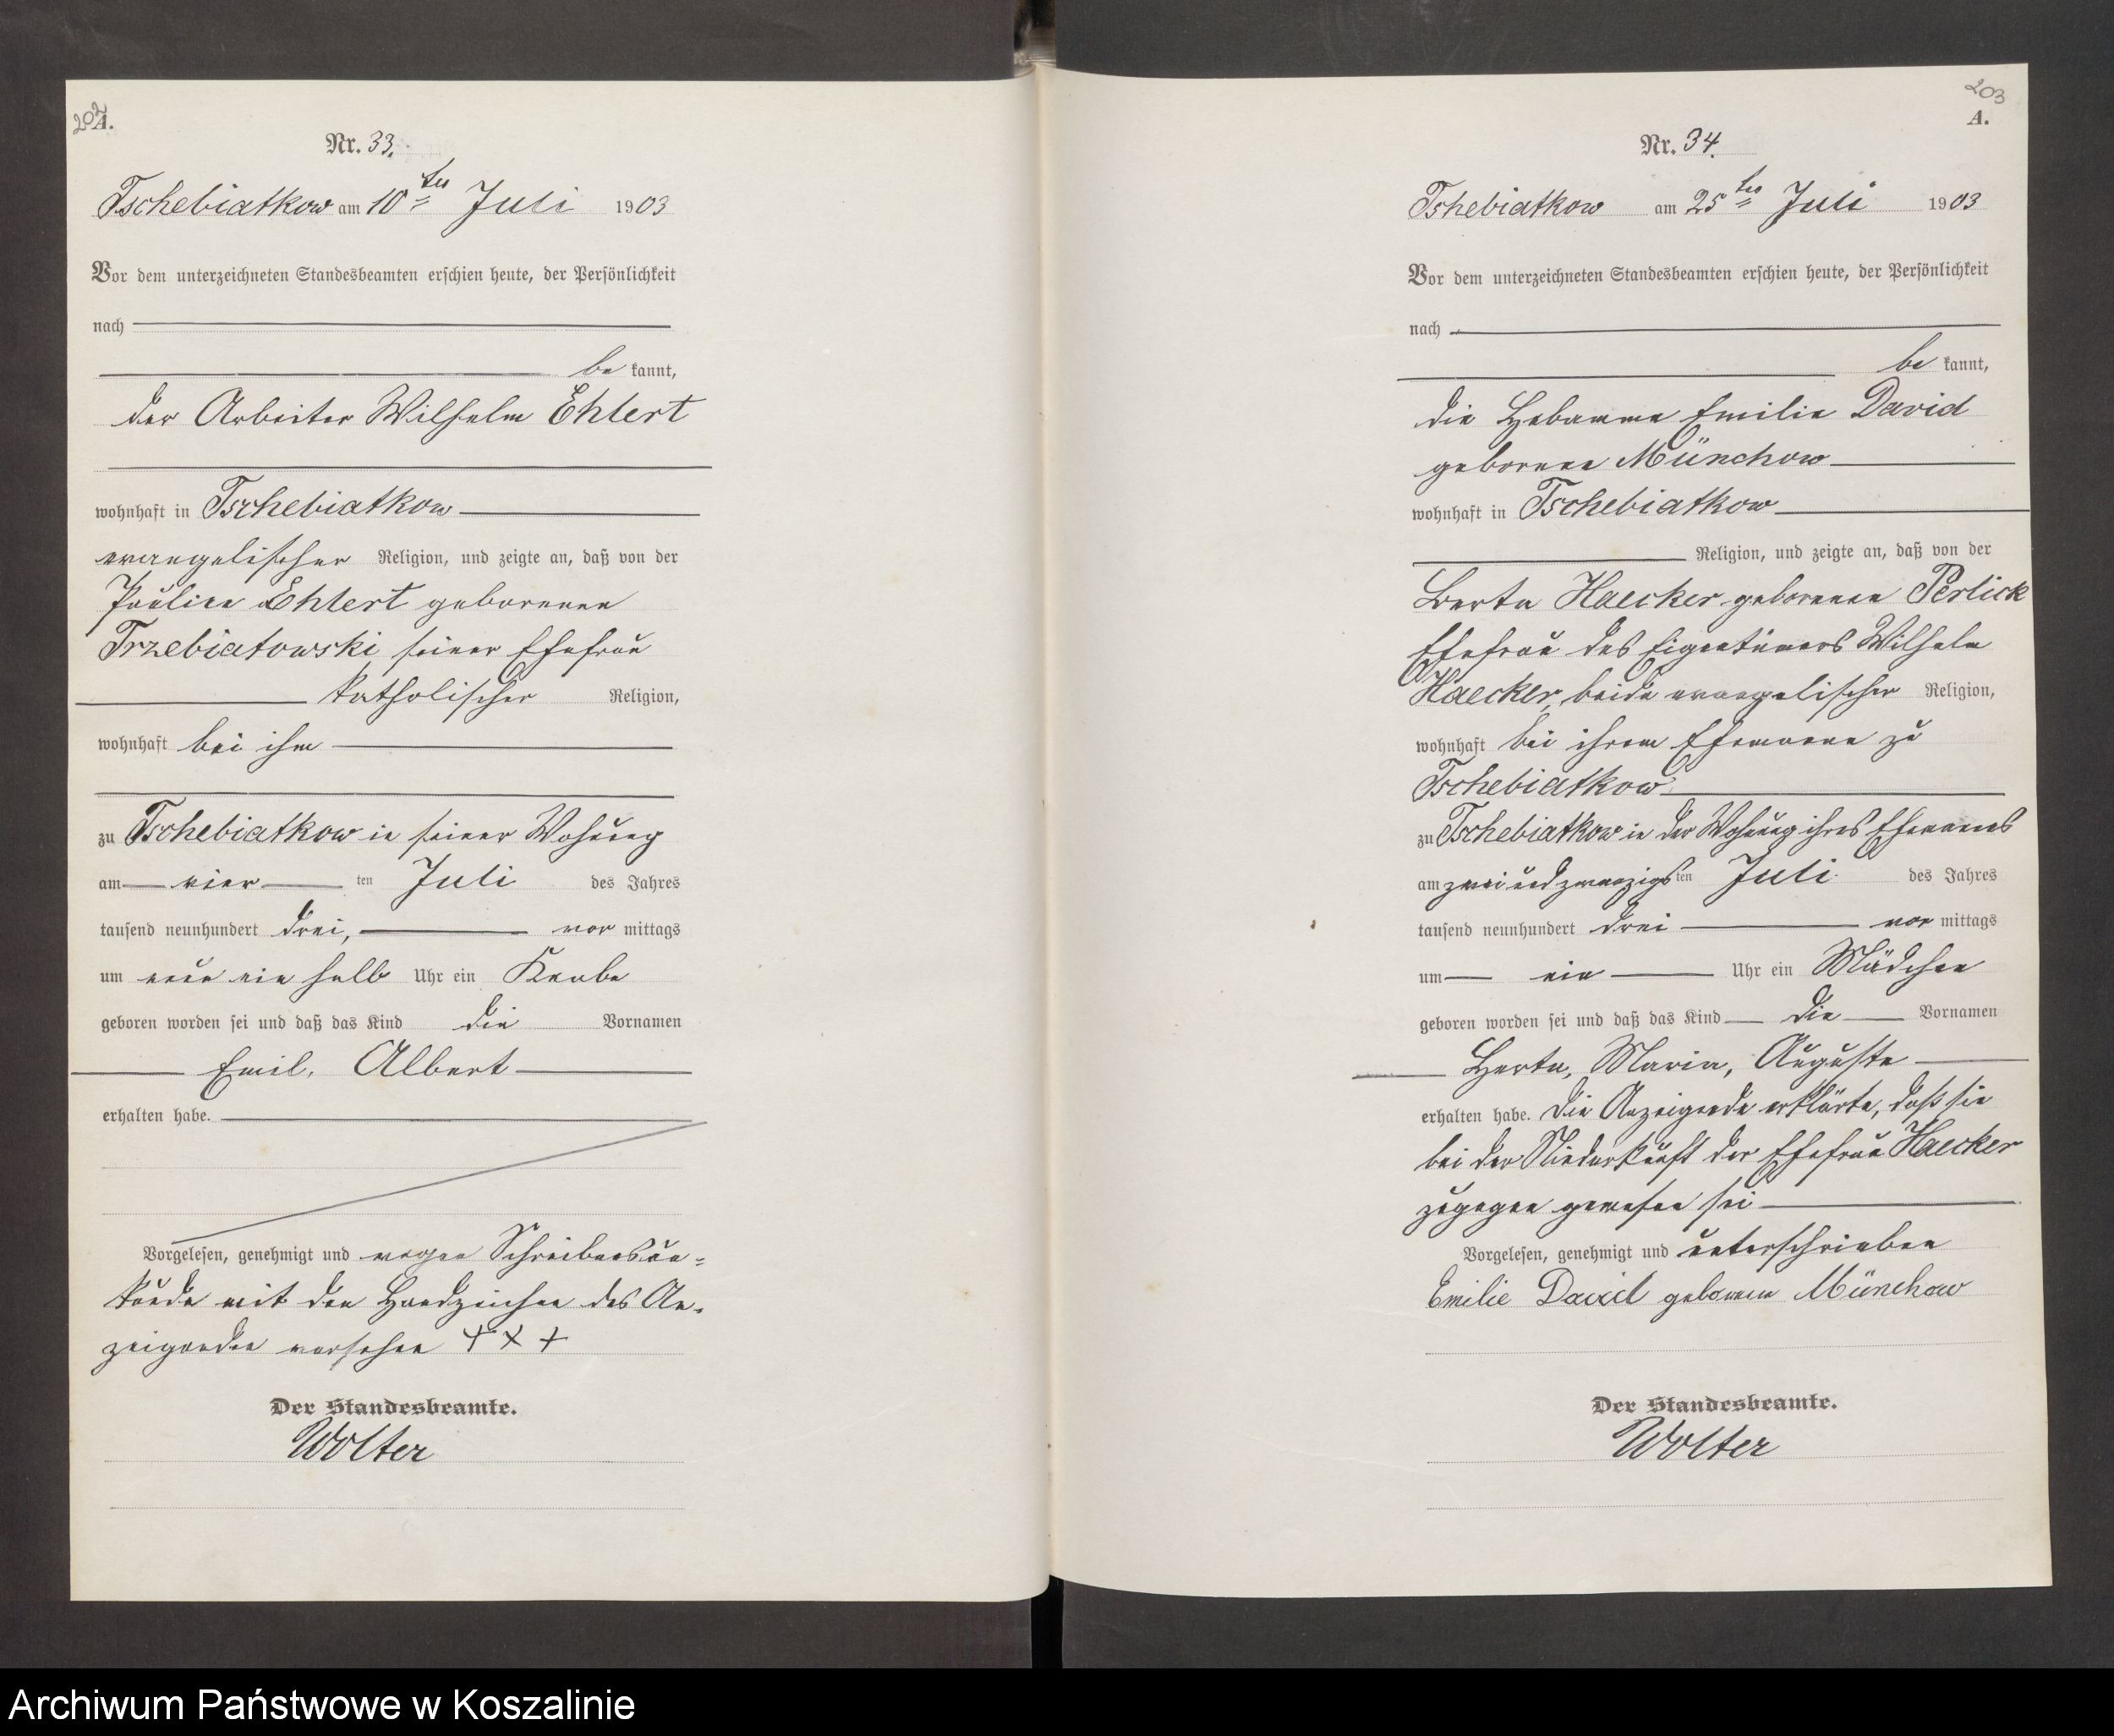 202
A.
Nr. 33.
Tschebiatkow am 10ten Juli 1903
Vor dem unterzeichneten Standesbeamten erschien heute, der Persönlichkeit
nach
be kannt,
der Arbeiter Wilhelm Ehlert
wohnhaft in Tschebiatkow
evangelischer Religion, und zeigte an, daß von der
Pauline Ehlert geborenen
Trzebiatowski, seiner Ehefrau
katholischer Religion,
wohnhaft bei ihm
zu Tschebiatkow in seiner Wohnung
am vier ten Juli des Jahres
tausend neunhundert drei, vor mittags
um neun ein halb Uhr ein Knabe
geboren worden sei und daß das Kind die Vornamen
Emil, Albert
erhalten habe.
Vorgelesen, genehmigt und wegen Schreibensun=
kunde mit den Handzeichen des An=
zeigenden versehen + + +
Der Standesbeamte.
Wolter
203
A.
Nr. 34.
Tshebiatkow am 25ten Juli 1903
Vor dem unterzeichneten Standesbeamten erschien heute, der Persönlichkeit
nach
be kannt,
die Hebamme Emilie David
geborene Münchow
wohnhaft in Tschebiatkow
Religion, und zeigte an, daß von der
Berta Haecker geborenen Perlick
Ehefrau des Eigentümers Wilhelm
Haecker, beide evangelischer Religion,
wohnhaft bei ihrem Ehemanne zu
Tschebiatkow
zu Tschebiatkow in der Wohnung ihres Ehemannes
am zwei und zwanzigs ten Juli des Jahres
tausend neunhundert drei vor mittags
um ein Uhr ein Mädchen
geboren worden sei und daß das Kind die Vornamen
Herta, Maria, Auguste
erhalten habe. Die Anzeigende erklärte, daß sie
bei der Niederkunft der Ehefrau Haecker
zugegen gewesen sei
Vorgelesen, genehmigt und unterschrieben
Emilie David geborene Münchow
Der Standesbeamte.
Wolter
Archiwum Państwowe w Koszalinie